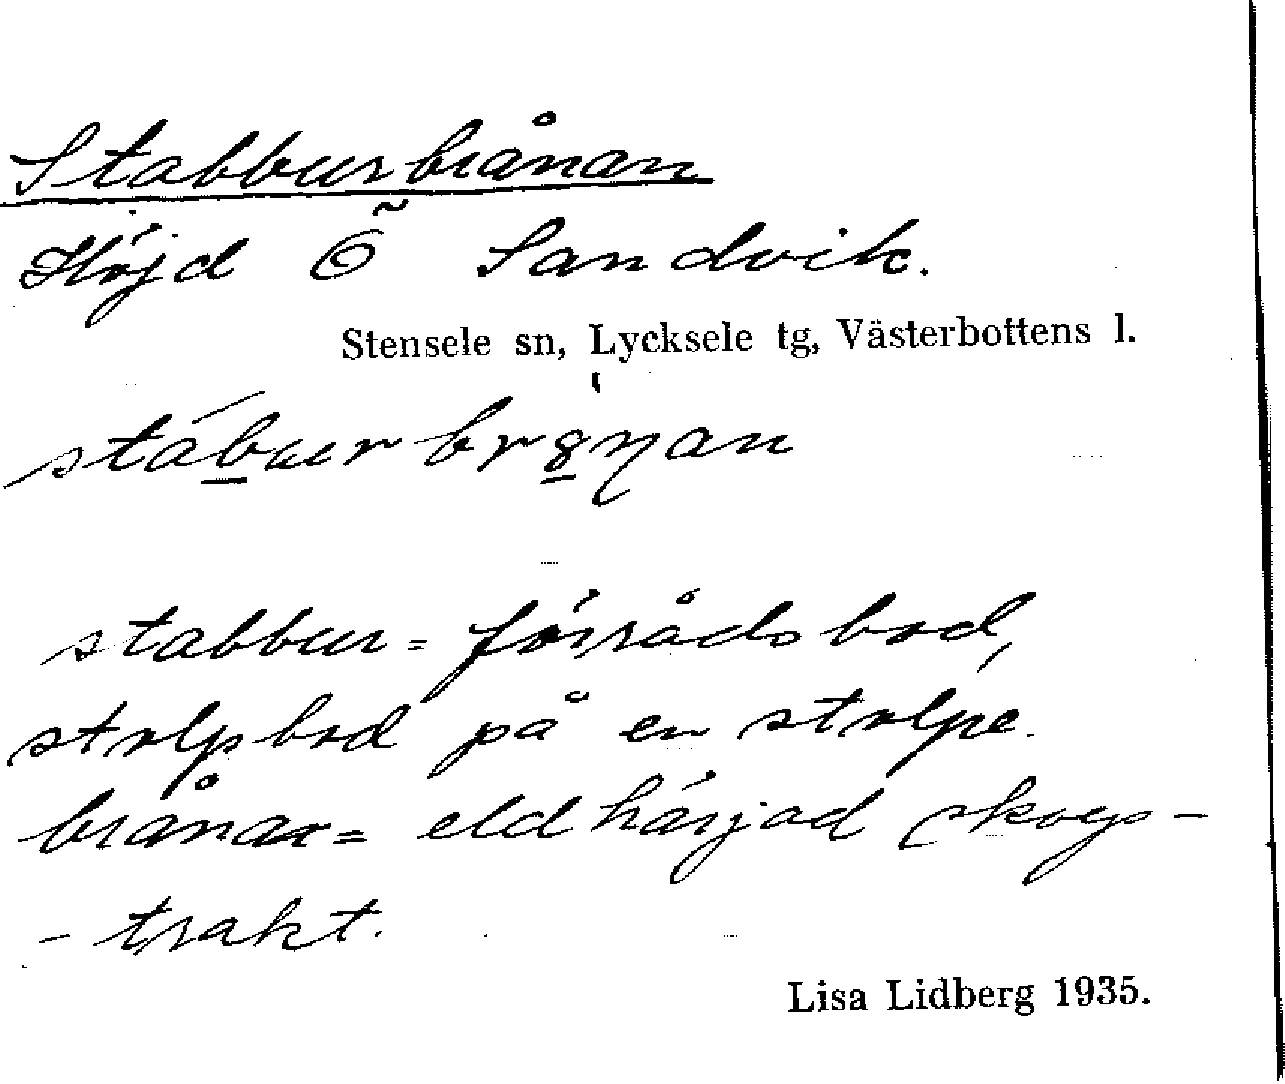 Stabburbrånan
Höjd Ö Sandvik.
Stensele sn, Lycksele tg, Västerbottens l.
stabbur = förrådsbod,
stolpbod på en stolpe.
brånar = eldhärjad skogs-
- trakt.
Lisa Lidberg 1935.